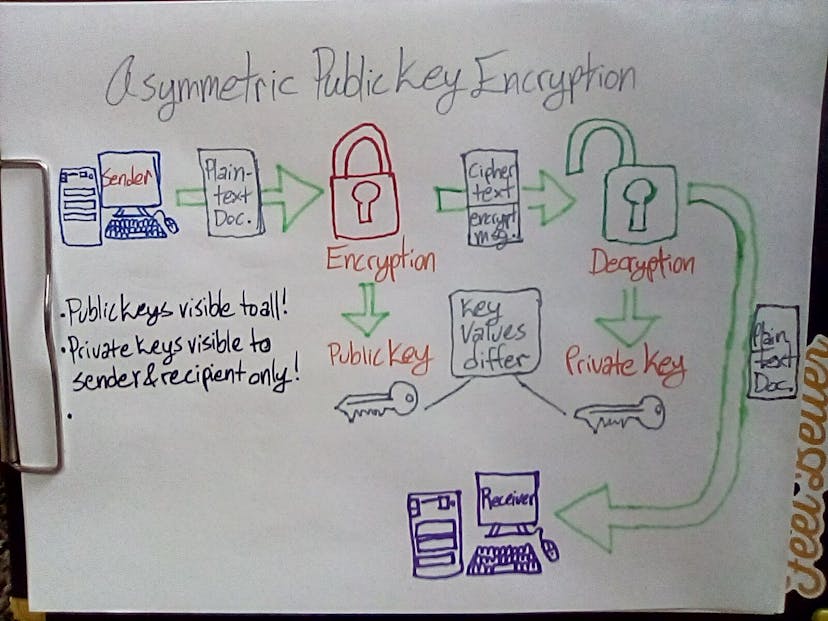 Asymmetric Public Key Encryption
Sender
Plain-
text
Doc.
Cipher
text
encrypt
msg.
Encryption
Decryption
• Public keys visible to all!
• Private keys visible to
sender & recipient only!
•
Public Key
Key
Values
differ
Private Key
Plain
text
Doc.
Receiver
feel Better